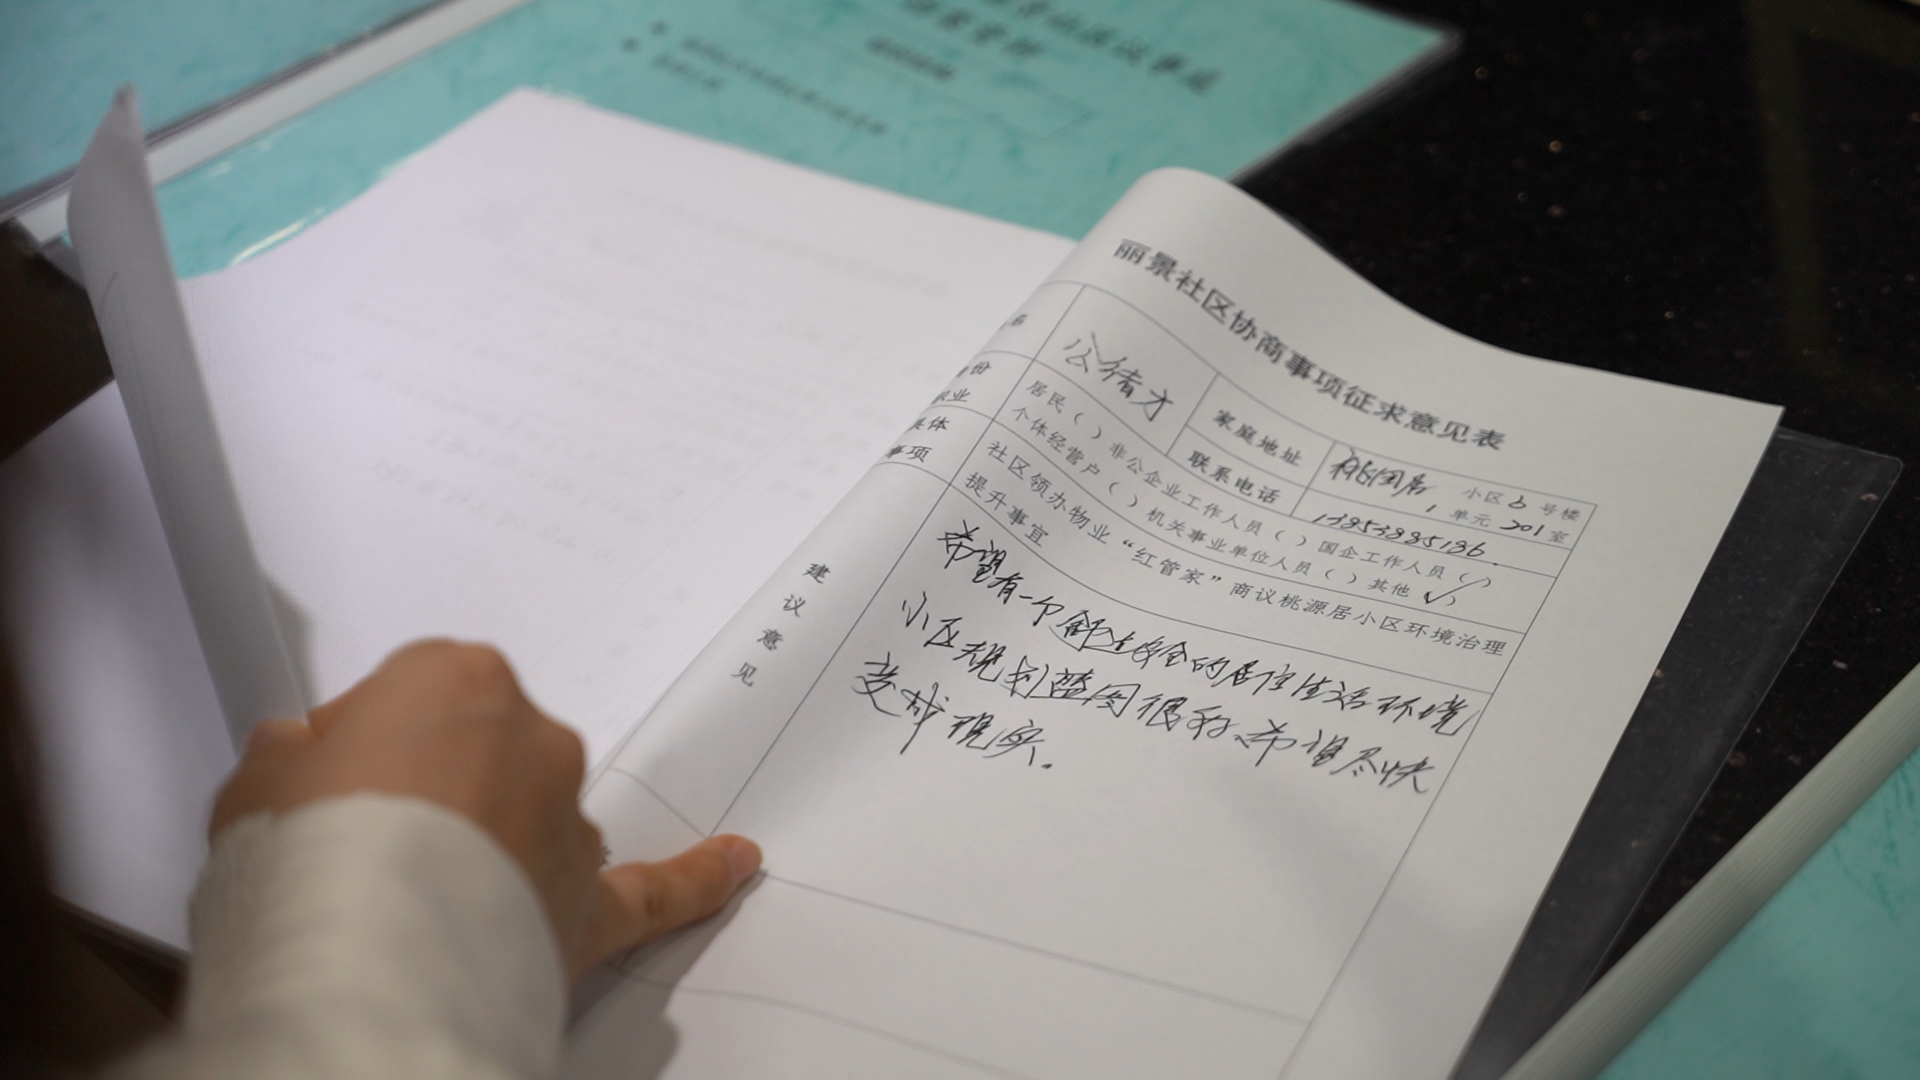 丽景社区协商事项征求意见表
名
公绪才
家庭地址
桃园居 小区6号楼
1单元201室
联系电话
13853885186
份
业
居民（ ）非公企业工作人员（ ）国企工作人员（ ）
个体经营户（ ）机关事业单位人员（ ）其他（✓）
具体
事项
社区领办物业“红管家”商议桃源居小区环境治理
提升事宜
建议意见
希望有一个舒适安全的居住生活环境
小区规划蓝图很好、希望尽快
变成现实.